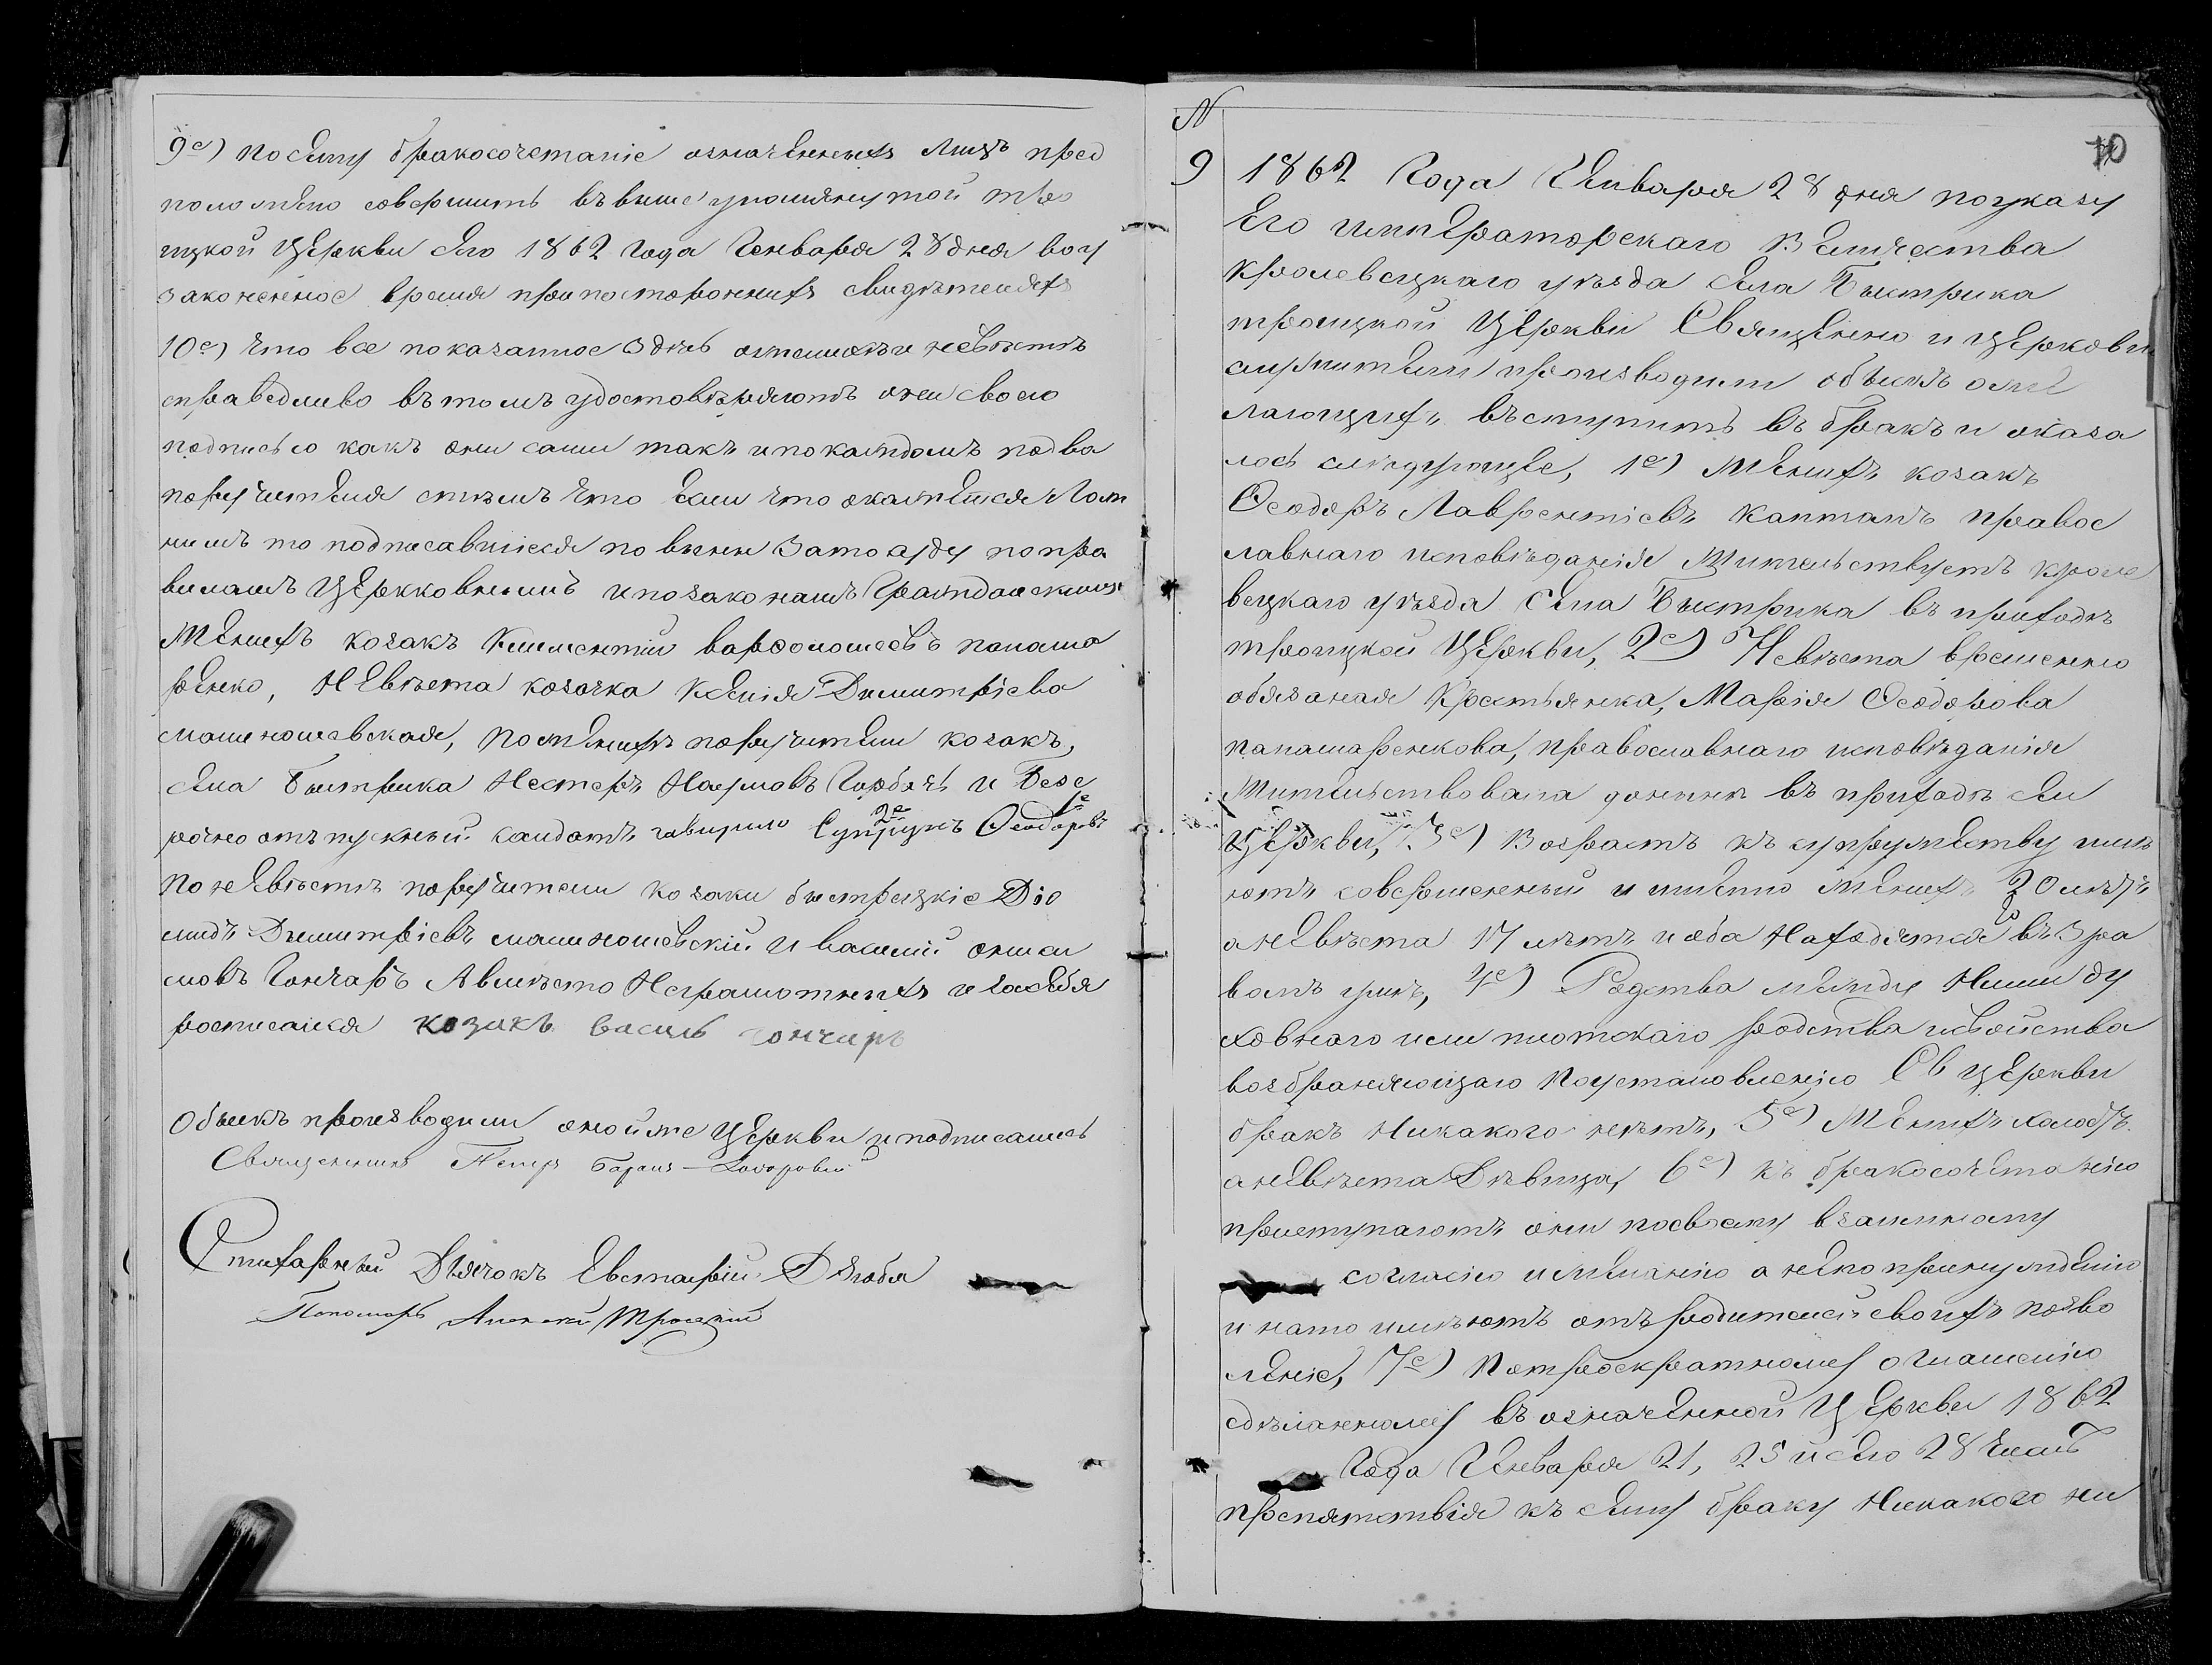 9е) по сему бракосочетаніе означенныхъ лицъ пред
положено совершить въ выше упомянутой тро
ицкой Церкви сего 1862 года Генваря 28 дня в оу
законенное время при постороннихъ свидѣтеляхъ
10е) что все показанное здѣсь о женихѣ и невѣстѣ
справедливо въ томъ удостовѣряютъ они своею
подписью какъ они сами такъ и по каждомъ по два
поручителя стѣмъ что если что окажется лож
нымъ то подписавшіеся повинны за то суду по пра
виламъ Церкковнымъ и по законамъ Гражданскимъ
Женихъ козакъ Климентій варѳоломеевъ папаша
ренко, Невѣста козачка Ксенія Димитріева
малиношевская, По женихѣ поручители козакъ,
села Быстрика Нестеръ Наумовъ Горбачъ и Безс
рочно отъпускный салдатъ гаврило Супрунъ 2е Ѳеодоровъ 1е
По невѣстѣ поручители козаки быстрицкіе Діо
мидъ Димитріевъ малиношевскій и василій
Гончаръ А вмѣсто Неграмотныхъ и за себя
росписался козакъ василь гончаръ
Обыскъ производили оной же Церкви и подписались
Священникъ Петръ
Стихарный Дьячокъ Евстафій Дзюбя
Пономарь Алексѣй Троицкій
N
10
9 1862 Года Генваря 28 дня по указу
Его императорскаго Величества
Кролевецкаго уѣзда села Быстрика
троицкой Церкви Священно и церковно
служители производили обыскъ о же
лающихъ въступить въ бракъ и оказа
лось слѣдующее, 1е) женихъ козакъ
Ѳеодоръ Лаврентіевъ Каптанъ правос
лавнаго исповѣданія Жительствуетъ кроле
вецкаго уѣзда Села Быстрика въ приходѣ
троицкой Церкви, 2е) Невѣста временно
обязаная Крестьянка, Марія Ѳеодорова
папашаренкова, православнаго исповѣданія
Жительствовала донынѣ въ приходѣ сей
Церкви, 3е) Возрастъ къ супружеству имѣ
ютъ совершенный и именно женихъ 20 лѣтъ
а невѣста 17 лѣтъ и оба Находятся въ здра
вомъ умѣ, 4е) Родства между Ними ду
ховнаго или плотскаго родства и свойства
возбраняющаго По установленію Св Церкви
бракъ Никакого нѣтъ, 5е) Женихъ холостъ
а невѣста Дѣвица, 6е) къ бракосочетанію
приступаютъ они по своему взаимному
согласію и желанію а не по принужденію
и на то имѣютъ отъ родителей своихъ позво
леніе, 7е) По троекратному оглашенію
сдѣланному въ означенной Церкви 1862
Года Генваря 21, 25 и сего 28 чиселъ
препятствія къ сему браку Никакого ни